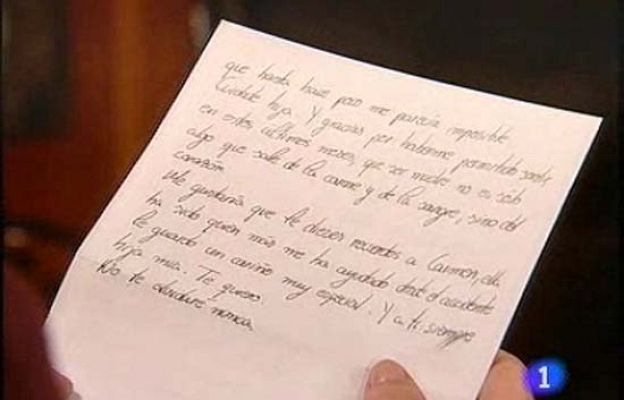 que hasta hace poco me parecía imposible.
Cuidate hija. Y gracias por haberme permitido sentir,
en estos últimos meses, que ser madre no es sólo
algo que sale de la carne y de la sangre, sino del
corazón.
Me gustaría que le dieses recuerdos a Carmen, ella
ha sido quien más me ha ayudado desde el accidente
le guardo un cariño muy especial. Y a ti siempre
hija mía. Te quiero.
No te olvidaré nunca.
1